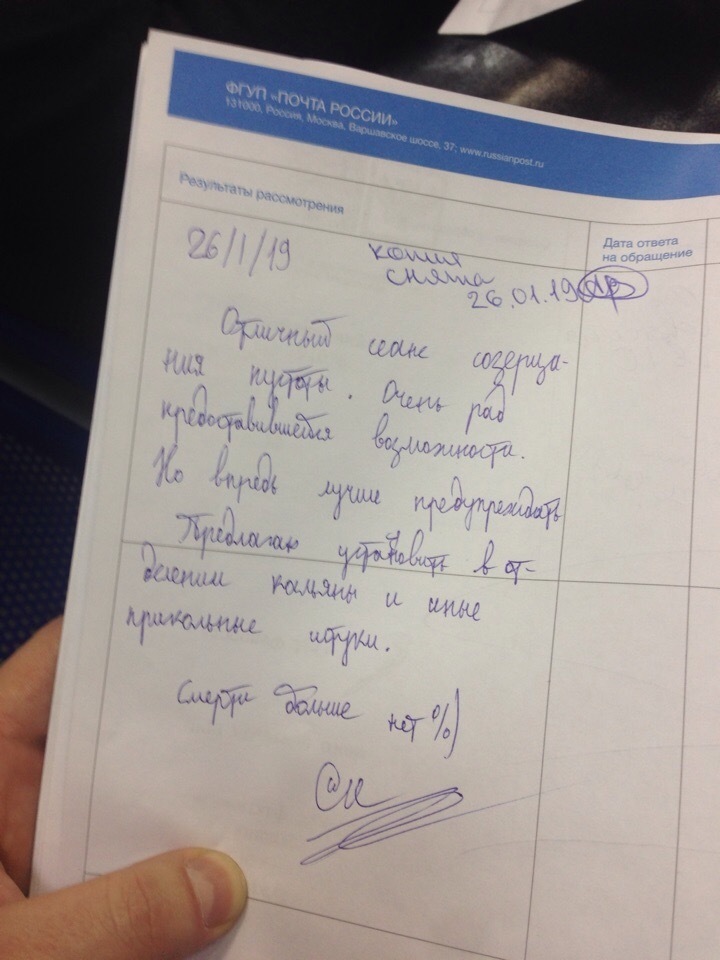 ФГУП «ПОЧТА РОССИИ»
131000, Россия, Москва, Варшавское шоссе, 37; www.russianpost.ru
Результаты рассмотрения
Дата ответа
на обращение
26/1/19
копия
снята
26.01.19
Отличный сеанс созерца-
ния пустоты. Очень рад
предоставившейся возможности.
Но впредь лучше предупреждать
Предлагаю установить в от-
делении кальяны и иные
прикольные штуки.
Смерти больше нет %)